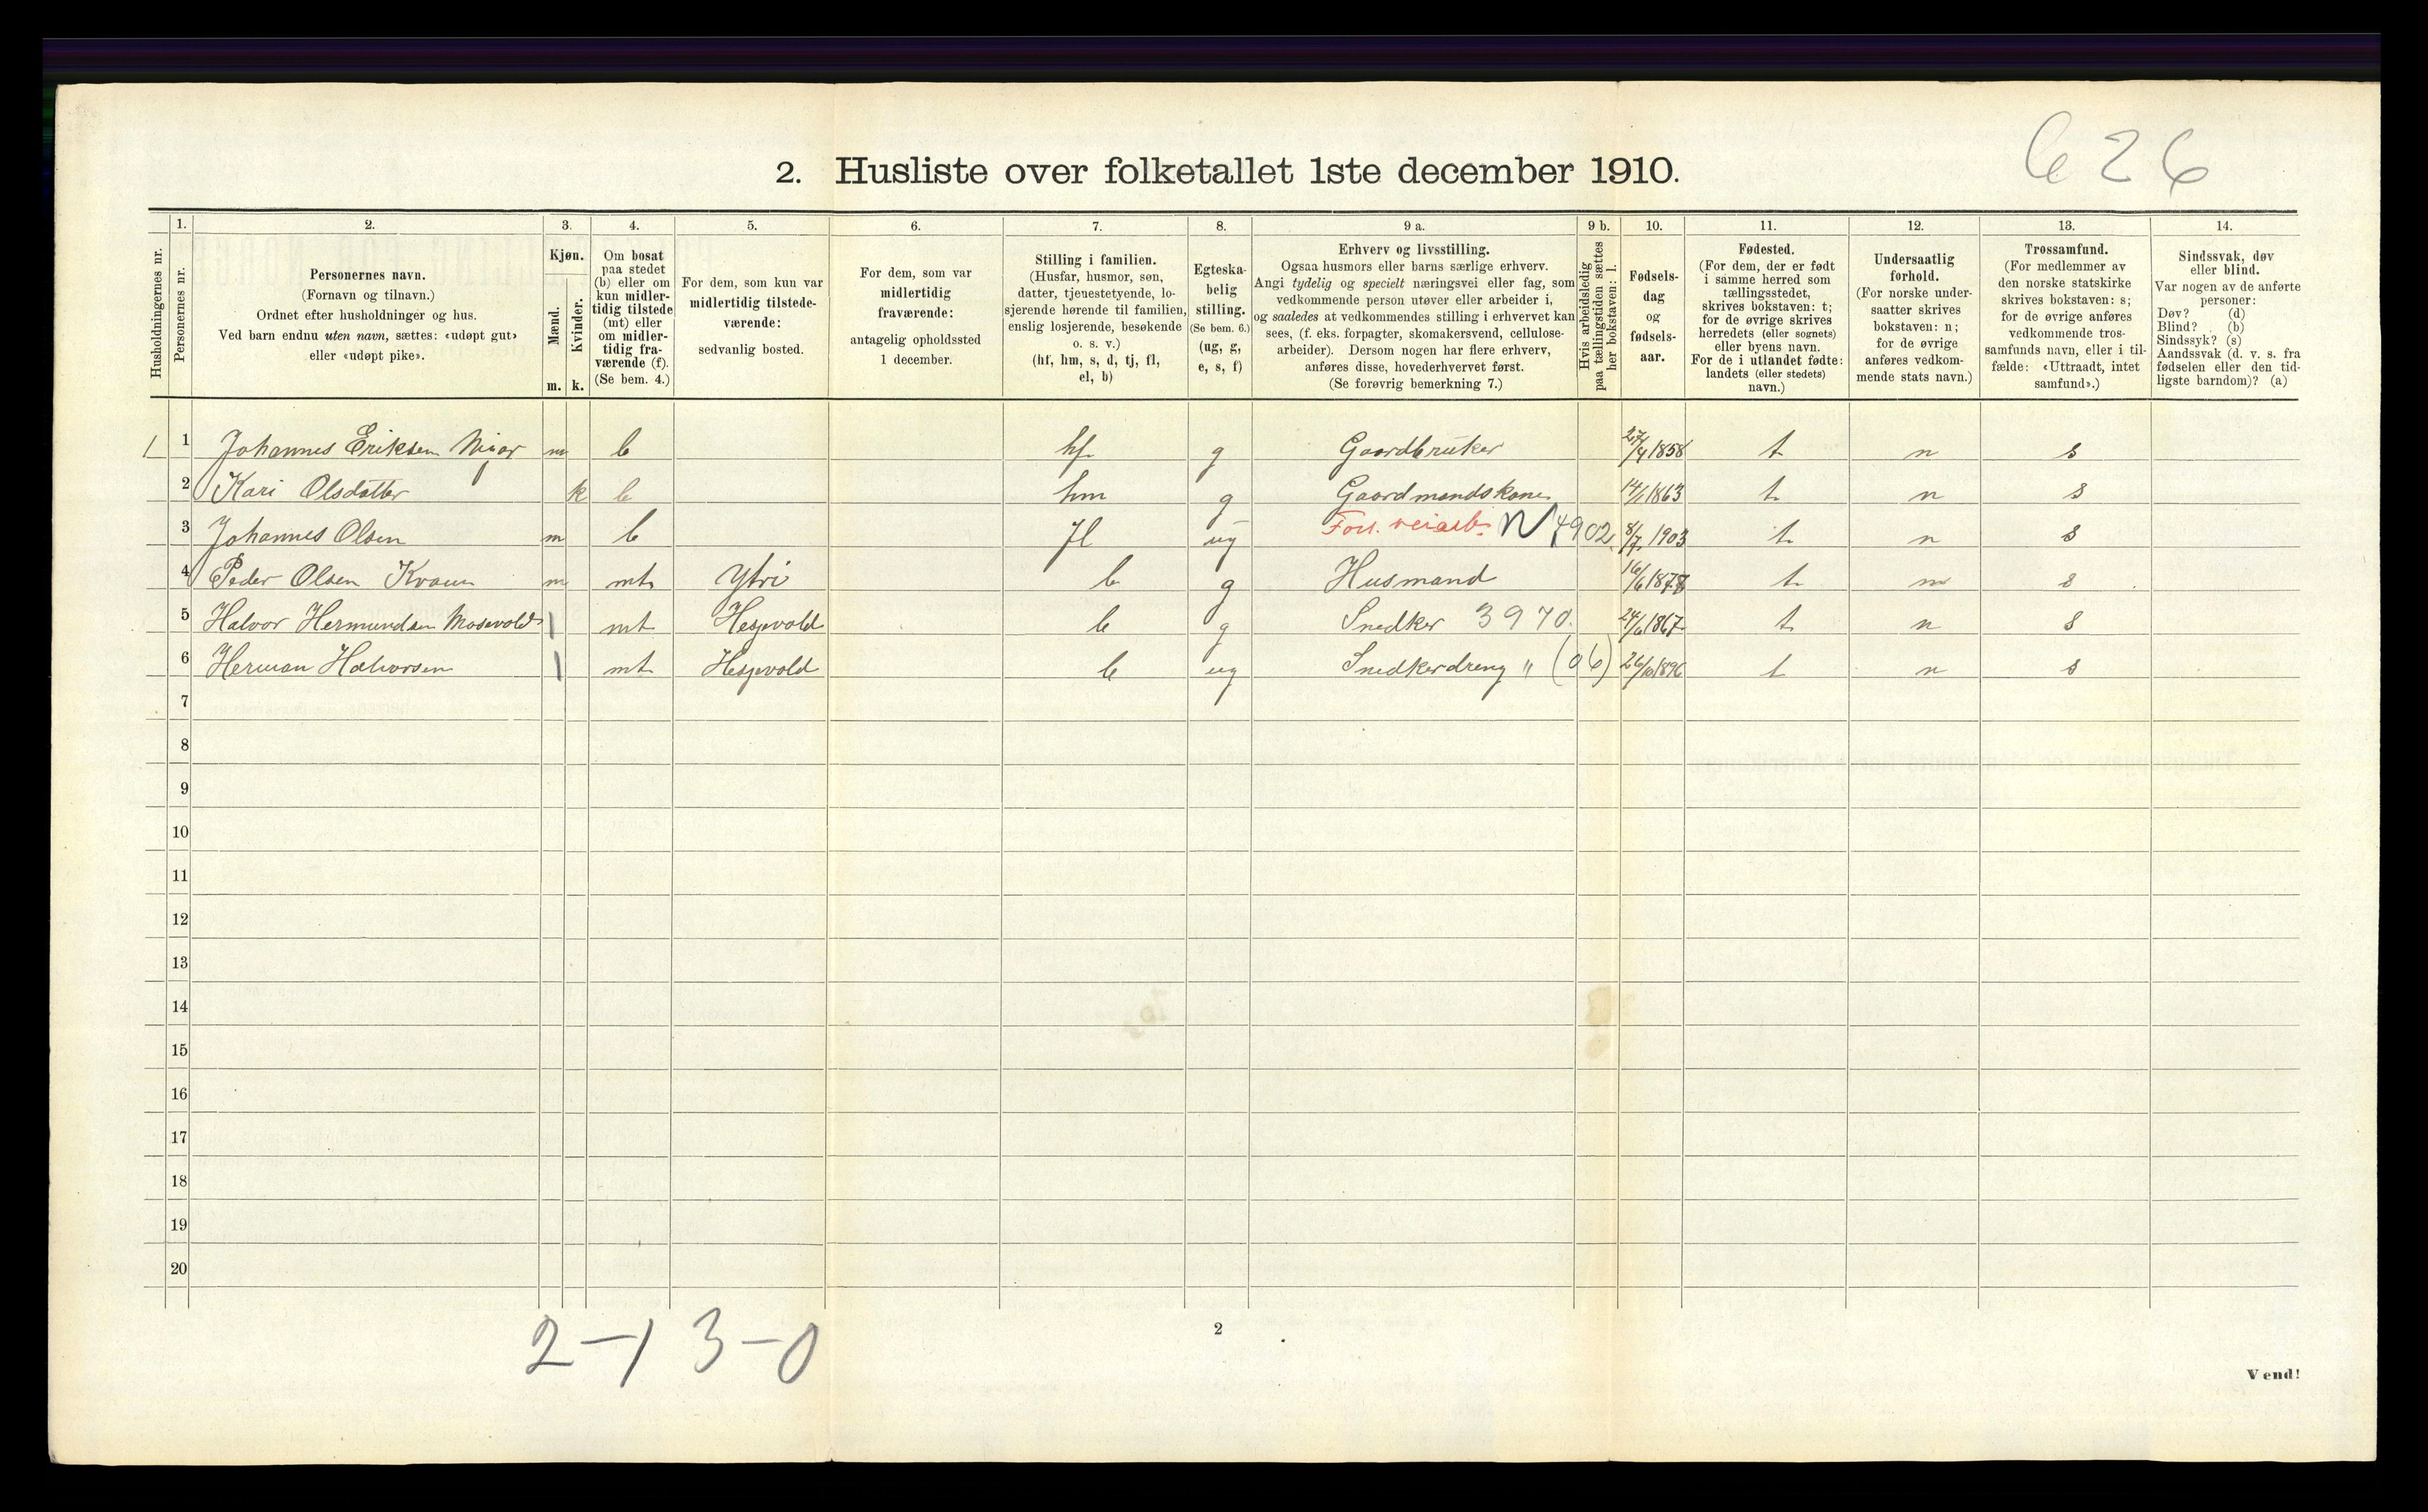 626
2. Husliste over folketallet 1ste december 1910.
Husholdningernes nr.
1.
Personernes nr.
2.
Personernes navn.
(Fornavn og tilnavn.)
Ordnet efter husholdninger og hus.
Ved barn endnu uten navn, sættes: «udøpt gut»
eller «udøpt pike».
3.
Kjøn.
Mænd.
Kvinder.
m. k.
4.
Om bosat
paa stedet
(b) eller om
kun midler-
tidig tilstede
(mt) eller
om midler-
tidig fra-
værende (f).
(Se bem. 4.)
5.
For dem, som kun var
midlertidig tilstede-
værende:
sedvanlig bosted.
6.
For dem, som var
midlertidig
fraværende:
antagelig opholdssted
1 december.
7.
Stilling i familien.
(Husfar, husmor, søn,
datter, tjenestetyende, lo-
sjerende hørende til familien,
enslig losjerende, besøkende
o. s. v.)
(hf, hm, s, d, tj, fl,
el, b)
8.
Egteska-
belig
stilling.
(Se bem. 6.)
(ug, g,
e, s, f)
9 a.
Erhverv og livsstilling.
Ogsaa husmors eller barns særlige erhverv.
Angi tydelig og specielt næringsvei eller fag, som
vedkommende person utøver eller arbeider i,
og saaledes at vedkommendes stilling i erhvervet kan
sees, (f. eks. forpagter, skomakersvend, cellulose-
arbeider). Dersom nogen har flere erhverv,
anføres disse, hovederhvervet først.
(Se forøvrig bemerkning 7.)
9 b.
Hvis arbeidsledig
paa tællingstiden sættes
her bokstaven: l.
10.
Fødsels-
dag
og
fødsels-
aar.
11.
Fødested.
(For dem, der er født
i samme herred som
tællingsstedet,
skrives bokstaven: t;
for de øvrige skrives
herredets (eller sognets)
eller byens navn.
For de i utlandet fødte:
landets (eller stedets)
navn.)
12.
Undersaatlig
forhold.
(For norske under-
saatter skrives
bokstaven: n;
for de øvrige
anføres vedkom-
mende stats navn.)
13.
Trossamfund.
(For medlemmer av
den norske statskirke
skrives bokstaven: s;
for de øvrige anføres
vedkommende tros-
samfunds navn, eller i til-
fælde: «Uttraadt, intet
samfund».)
14.
Sindssvak, døv
eller blind.
Var nogen av de anførte
personer:
Døv? (d)
Blind? (b)
Sindssyk? (s)
Aandssvak (d. v. s. fra
fødselen eller den tid-
ligste barndom)? (a)
1 1 Johannes Eriksen m b hf g Gaardbruker 27/4 1858 t n s
2 Kari Olsdatter k b hm g Gaardmandskone 14/1 1863 t n s
3 Johannes Olsen m b fl ug Fors. veiarb. N 4902 8/7 1903 t n s
4 Peder Olsen Kvam m mt Ytri b g Husmand 16/6 1878 t n s
5 Halvor Hermundsen Mosevold 1 mt Hegvold b g Snedker 3970. 24/6 1867 t n s
6 Herman Halvorsen 1 mt Hegvold b ug Snedkerdreng " (06) 26/10 1896 t n s
7
8
9
10
11
12
13
14
15
16
17
18
19
20
2-1 3-0
2
Vend!